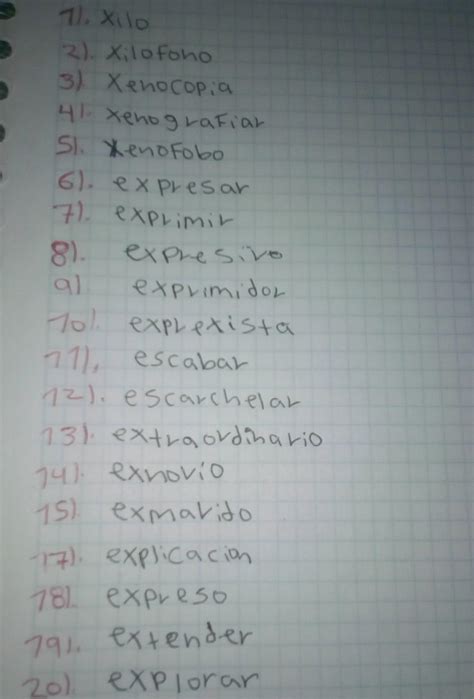 1). xilo
2). xilofono
3) xenocopia
4). xenografiar
5). xenofobo
6). expresar
7). exprimir
8). expresivo
9) exprimidor
10). exprexista
11), escabar
12). escarchelar
13). extraordinario
14). exnovio
15) exmarido
17). explicacion
18). expreso
19). extender
20). explorar